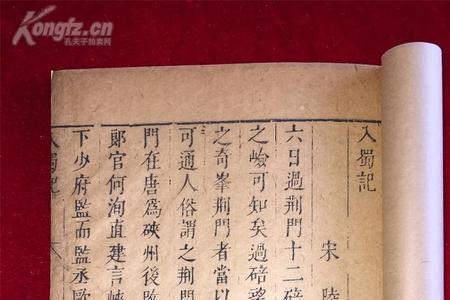 Kongfz.cn
孔夫子拍卖网
入蜀記
宋 陸
六日過荆門十二碚
之嶮可知矣過碚望
之奇峯荆門者當以
可通人俗謂之荆門
門在唐爲硤州後
郎官何洵直建言峽
下少府監而監丞歐
入蜀記